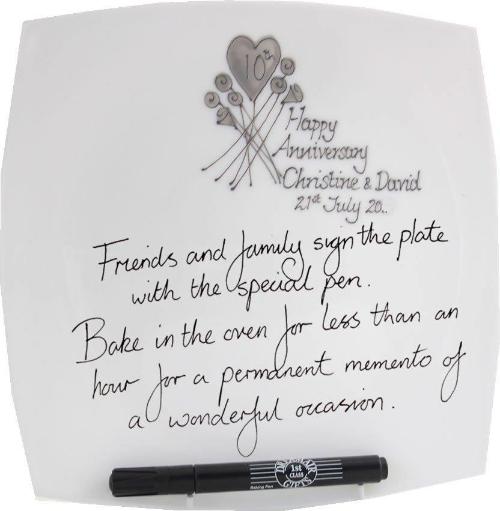 10th
Happy
Anniversary
Christine & David
21st July 20..
Friends and family sign the plate
with the special pen.
Bake in the oven for less than an
hour for a permanent memento of
a wonderful occasion.
1st
CLASS
GIFTS
Baking Pen